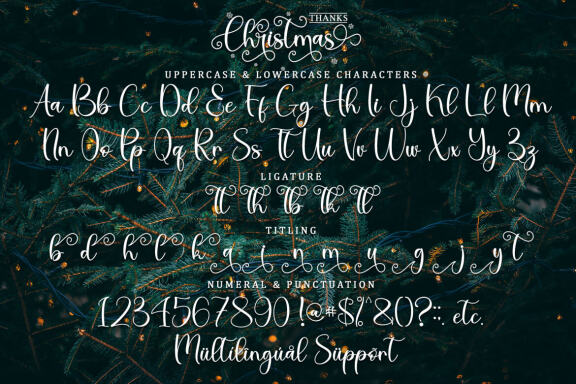 THANKS
Christmas
UPPERCASE & LOWERCASE CHARACTERS
Aa Bb Cc Dd Ee Ff Gg Hh Ii Jj Kk Ll Mm
Nn Oo Pp Qq Rr Ss Tt Uu Vv Ww Xx Yy Zz
LIGATURE
tt th tb tk tl
TITLING
b d h l k a i n m u g j y t
NUMERAL & PUNCTUATION
1234567890!@#$%^&()?:. etc.
Mültilingúàl Süppõrt